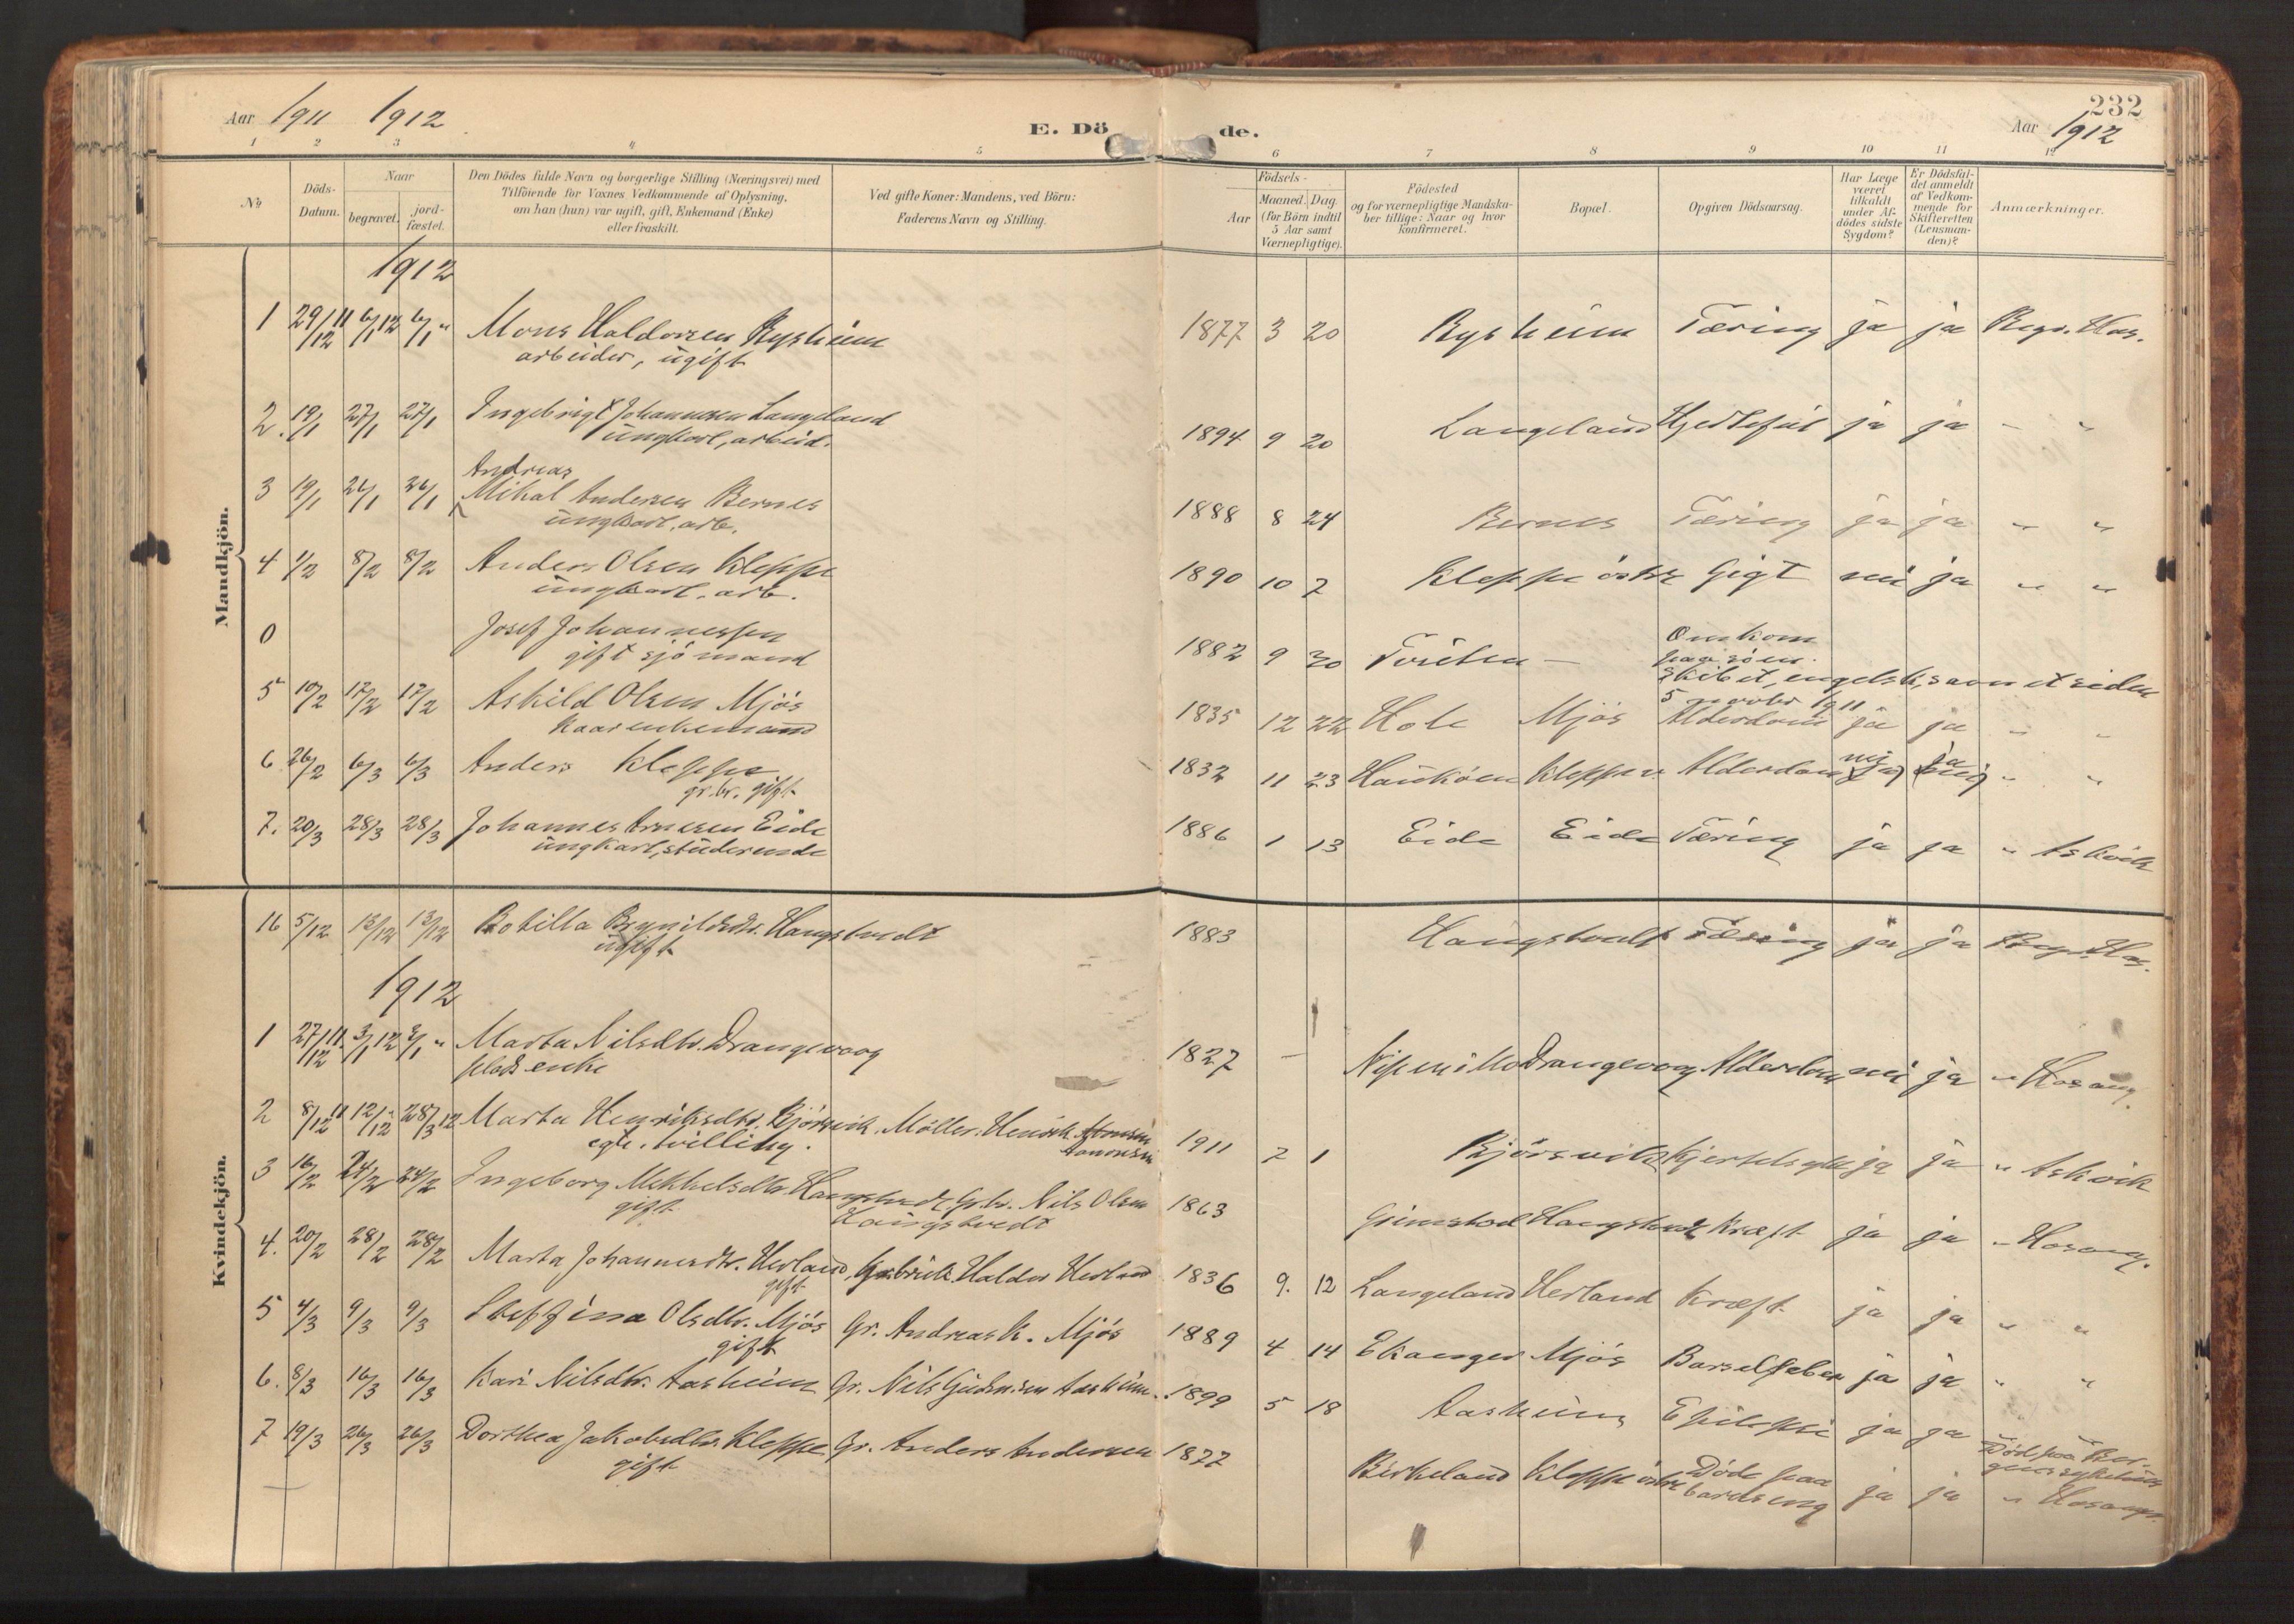 232
Aar 1911 1912
E. Döde.
Aar 1912
1 2 3 4 5 6 7 8 9 10 11 12
No
Döds-Datum.
Naar
begravet.
jord-fæstet.
Den Dödes fulde Navn og borgerlige Stilling (Næringsvei) med
Tilföiende for Voxnes Vedkommende af Oplysning,
om han (hun) var ugift, gift, Enkemand (Enke)
eller fraskilt.
Ved gifte Koner: Mandens, ved Börn:
Faderens Navn og Stilling.
Födsels-
Aar
Maaned. Dag.
(for Börn indtil
5 Aar samt
Værnepligtige).
Födested
og for værnepligtige Mandska-
ber tillige: Naar og hvor
konfirmeret.
Bopæl.
Opgiven Dödsaarsag.
Har Læge
været
tilkaldt
under Af-
dödes sidste
Sygdom?
Er Dödsfal-
det anmeldt
af Vedkom-
mende for
Skifteretten
(Lensman-
den)?
Anmærkninger.
Mandkjön.
1912
1 29/12 11 6/1 12 6/1 " Mons Haldorsen Rysheim 1877 3 20 Rysheim Tæring ja ja Begr. Hos.
arbeider, ugift
2. 19/1 27/1 27/1 Ingebrigt Johannesen Langeland 1894 9 20 Langeland ja ja " "
ungkarl, arbeid.
Andreas
3 19/1 26/1 26/1 Mikal Andersen Bernes 1888 8 24 Bernes Tæring ja ja " "
ungkarl, arb.
4 1/2 8/2 8/2 Anders Olsen Kleppe 1890 10 7 Kleppe östre Gigt nei ja " "
ungkarl, arb.
0 Josef Johannessen 1882 9 30 — Omkom
gift sjömand
skibet, engelsk, savnet siden
5 novbr 1911
5 10/2 17/2 17/2 Askild Olsen Mjös 1835 12 22 Hole Mjös Alderdom ja ja " "
kaarenkemand
6 26/2 6/3 6/3 Anders Kleppe 1832 11 23 Kleppe Alderdom nei ja " "
gr.br. gift
7. 20/3 28/3 28/3 Johannes Arnesen Eide 1886 1 13 Eide Eide Tæring ja ja " Askvik
ungkarl, studerende
Kvindekjön.
16 5/12 13/12 13/12 Botilla Brynildsdtr. Hangstvedt 1883 Haugstvedt Tæring ja ja Begr. Hos.
ugift
1912
1 27/12 11. 3/1 12 3/1 " Marta Nilsdtr. Drangevaag 1827 — Drangevaag Alderdom nei ja " Hosang.
plads enke
2 8/12 11 12/12 28/3 12 Marta Henriksdtr. Björsvik. Möller. Henrik 1911 7 1 Björsvik ja ja " Askvik
egte. tvilling.
3 16/2 24/2 24/2 Ingeborg Mikkelsdtr. Haugstvedt Gbr. Nils Olsen 1863 Grimstad Haugstvedt Kræft ja ja " Hosang.
gift Haugstvedt
4. 20/2 28/2 28/2 Marta Johannesdtr. Herland, Gr.bruk. Haldor Herland 1836 9. 12 Langeland Herland Kræft ja ja " "
gift
5 4/3 9/3 9/3 Steffina Olsdtr. Mjös Gr. Andreas K. Mjös 1889 4 14 Ekanger Mjös Barselfeber ja ja " "
gift
6. 8/3 16/3 16/3 Kari Nilsdtr. Aasheim Gr. Nils Gudmsen Aasheim. 1899 5 18 Aasheim Epilepsi ja ja
7 19/3 26/3 26/3 Dorthea Jakobsdtr. Kleppe Gr. Anders Andersen 1877 Birkeland Kleppe östre Döde paa ja ja Död paa Ber-
gens sykehus
gift barseng " Hosanger.